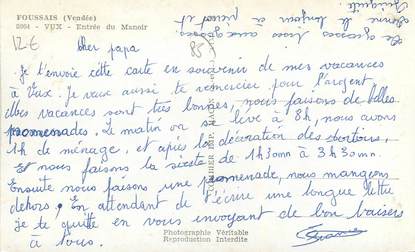 FOUSSAIS (Vendée)
2904 - VUX - Entrée du Manoir
12 €
85
Cher papa
Je t'envoie cette carte en souvenir de mes vacances
à Vux. Je vaux aussi te remercier pour l'argent.
Mes vacances sont très bonnes, nous faisons de belles
promenades. Le matin on se lève à 8h, nous avons
1h de ménage, et après la décoration des dortoirs,
Et nous faisons la sieste de 1h30mn à 3h30mn.
Ensuite nous faisons une promenade, nous mangeons
dehors. En attendant de t'écrire une longue lettre
je te quitte en vous envoyant de bon baisers
à tous.
Photographie Véritable
Reproduction Interdite
COMBIER IMP. MACON